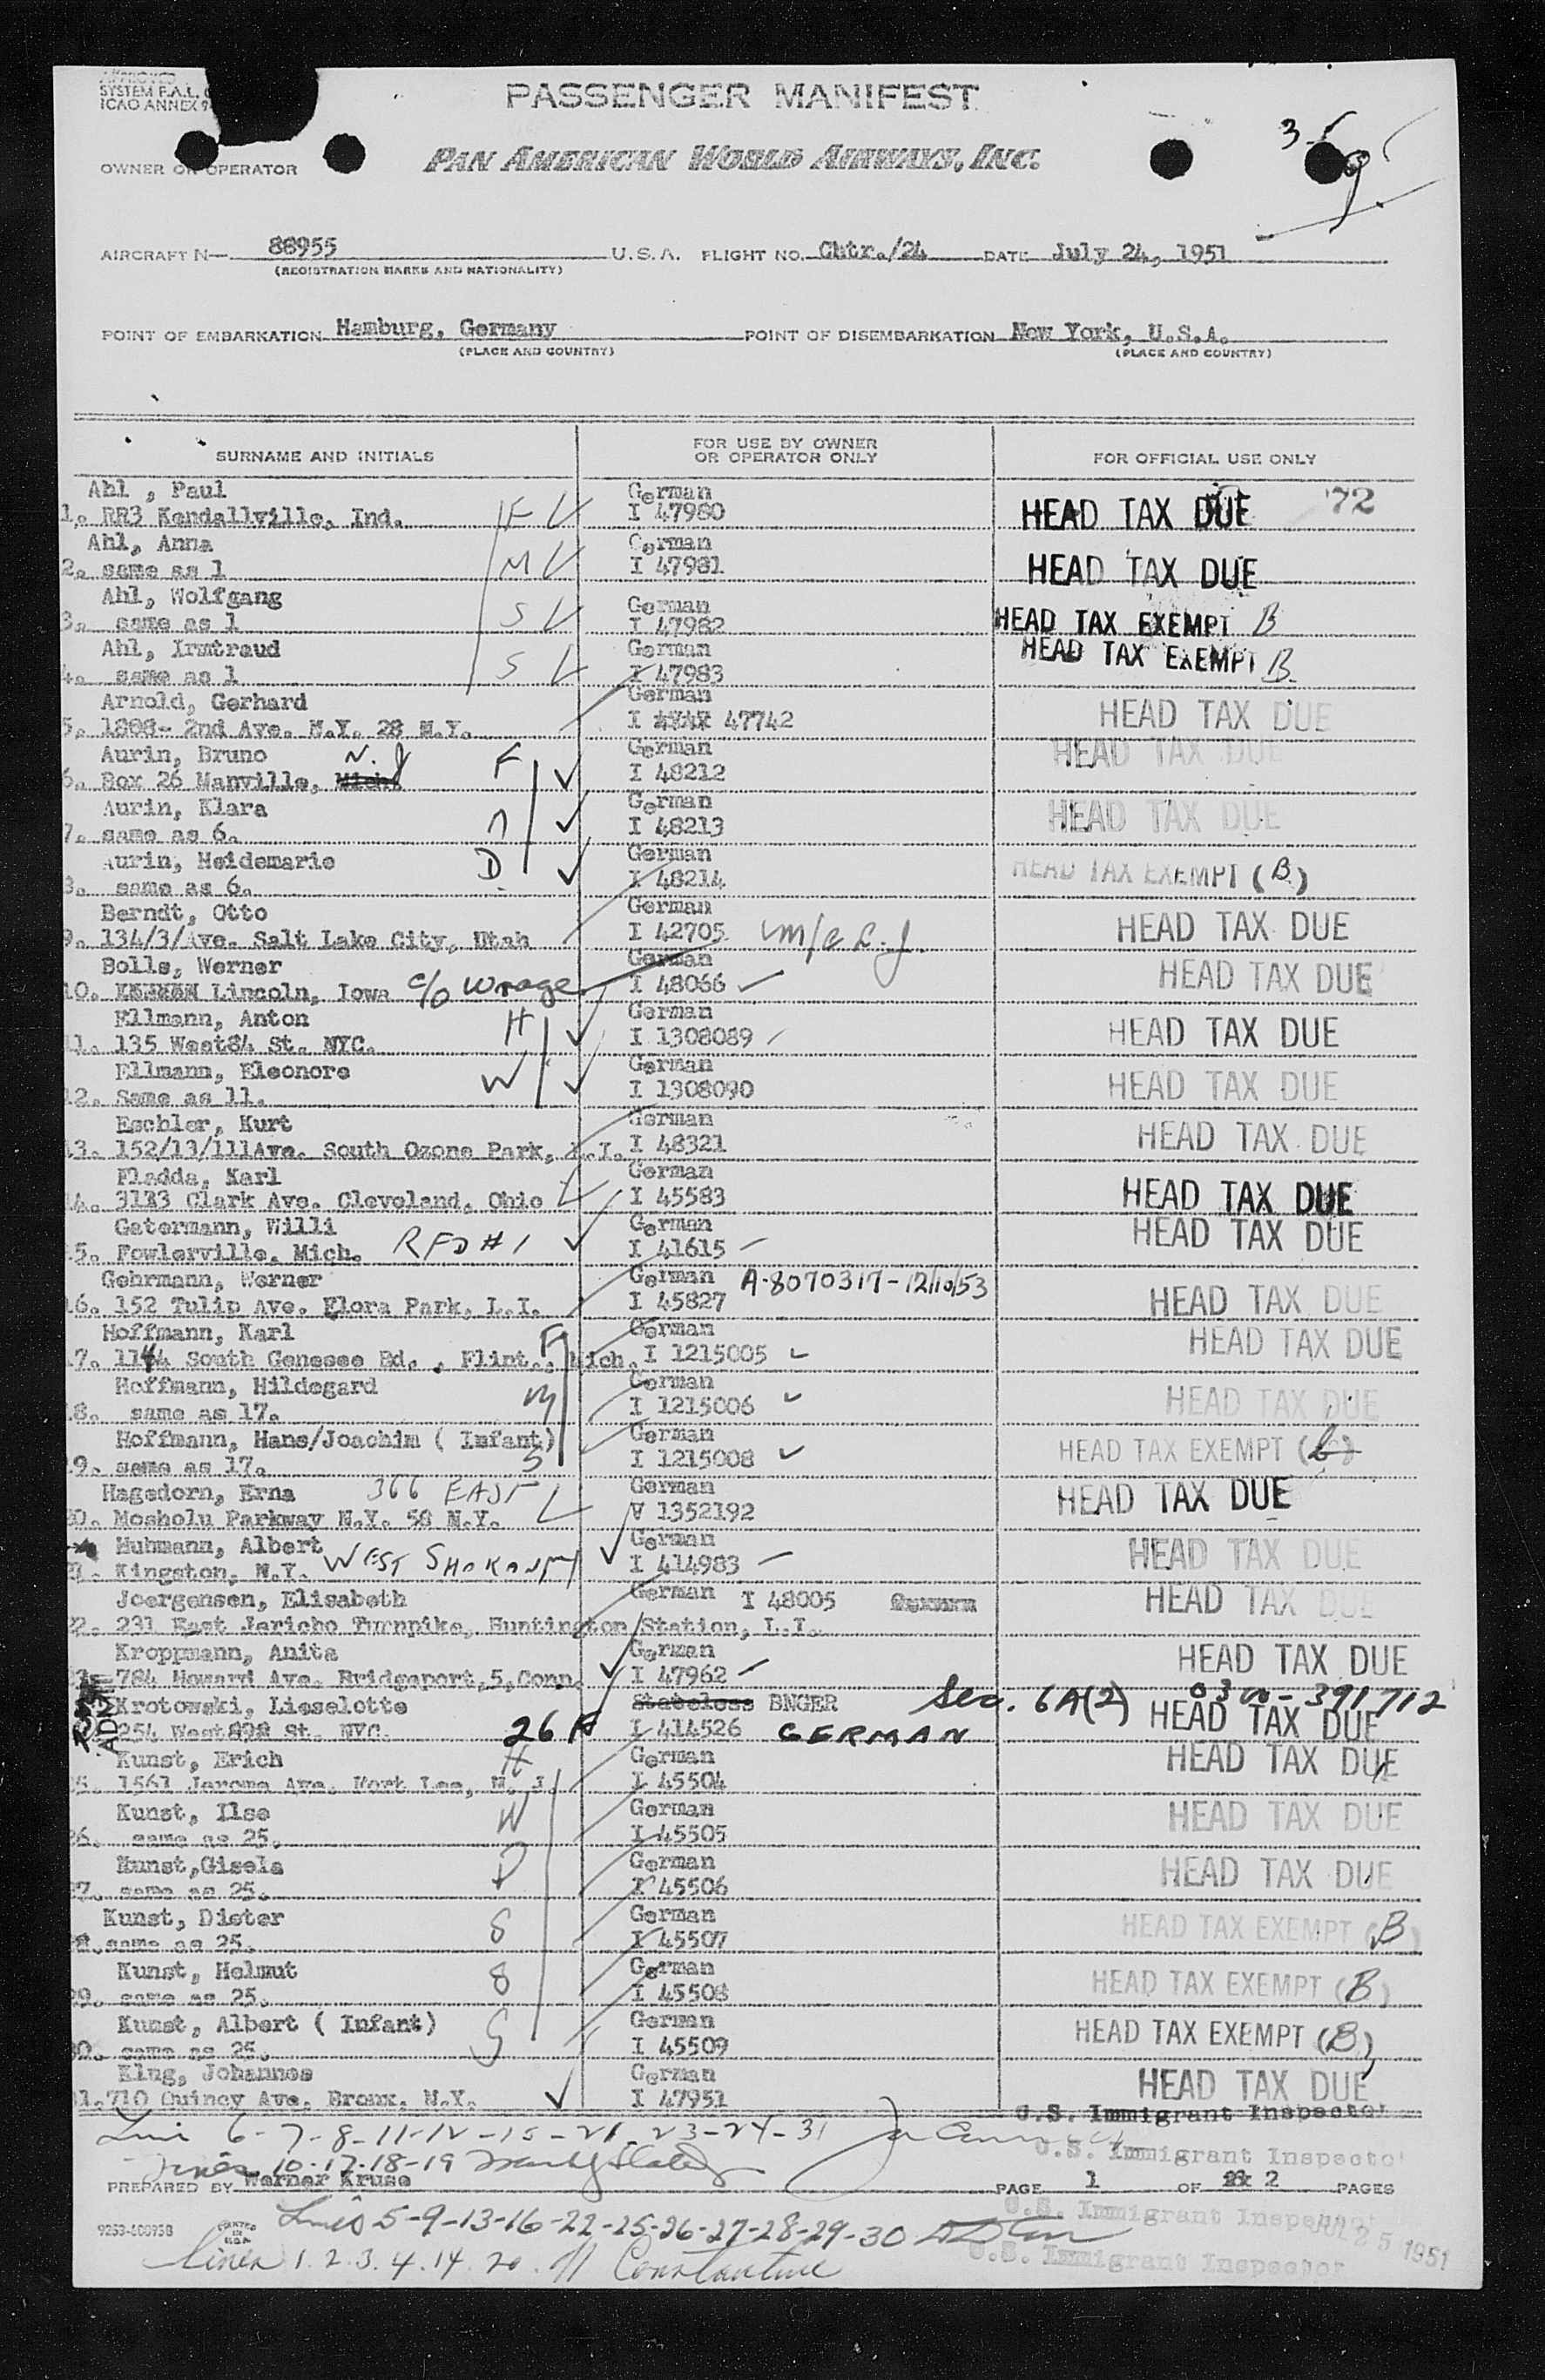 APPROVED
SYSTEM F.A.L.
ICAO ANNEX 9
PASSENGER MANIFEST
OWNER OR OPERATOR
PAN AMERICAN WORLD AIRWAYS, INC.
AIRCRAFT N— 88955 U.S.A. FLIGHT NO. Chtr./24 DATE July 24, 1951
(REGISTRATION MARKS AND NATIONALITY)
POINT OF EMBARKATION Hamburg, Germany POINT OF DISEMBARKATION New York, U.S.A.
(PLACE AND COUNTRY) (PLACE AND COUNTRY)
SURNAME AND INITIALS
FOR USE BY OWNER
OR OPERATOR ONLY
FOR OFFICIAL USE ONLY
Ahl , Paul German 72
1. RR3 Kendallville, Ind. F I 47980 HEAD TAX DUE
Ahl, Anna German
2. same as 1 M I 47981 HEAD TAX DUE
Ahl, Wolfgang German
3. same as 1 S I 47982 HEAD TAX EXEMPT B
Ahl, Irmtraud German HEAD TAX EXEMPT B
4. same as 1 S I 47983
Arnold, Gerhard German
5. 1808- 2nd Ave. N.Y. 28 N.Y. I 47742 HEAD TAX DUE
Aurin, Bruno N.J F German HEAD TAX DUE
6. Box 26 Manville, Mich I 48212
Aurin, Klara German
7. same as 6. M I 48213 HEAD TAX DUE
Aurin, Heidemarie D German
8. same as 6. I 48214 HEAD TAX EXEMPT (B)
Berndt, Otto German
9. 134/3/Ave. Salt Lake City, Utah I 42705 HEAD TAX DUE
Bolls, Werner German
10. Lincoln, Iowa c/o Wrage I 48066 HEAD TAX DUE
Ellmann, Anton H German
11. 135 West84 St. NYC. I 1308089 HEAD TAX DUE
Ellmann, Eleonore W German
12. Same as 11. I 1308090 HEAD TAX DUE
Eschler, Kurt German
13. 152/13/111Ave. South Ozone Park, L.I. I 48321 HEAD TAX DUE
Fladda, Karl German
14. Clark Ave. Cleveland, Ohio I 45583 HEAD TAX DUE
Gatermann, Willi German
15. Fowlerville, Mich. RFD #1 I 41615 HEAD TAX DUE
Gehrmann, Werner German A-8070317-12/10/53
16. 152 Tulip Ave. Flora Park, L.I. I 45827 HEAD TAX DUE
Hoffmann, Karl F German
17. 1144 South Genesee Rd. , Flint., Mich. I 1215005 HEAD TAX DUE
Hoffmann, Hildegard M German
18. same as 17. I 1215006 HEAD TAX DUE
Hoffmann, Hans/Joachim ( Infant) German
19. same as 17. S I 1215008 HEAD TAX EXEMPT (b)
Hagedorn, Erna 366 EAST German
20. Mosholu Parkway N.Y. 58 N.Y. V 1352192 HEAD TAX DUE
Huhmann, Albert German
21. Kingston, N.Y. WEST SHOKAN I 414983 HEAD TAX DUE
Joergensen, Elisabeth German I 48005 HEAD TAX DUE
22. 231 East Jericho Turnpike, Huntington Station, L.I.
Kroppmann, Anita German
23. 784 Howard Ave. Bridgeport,5,Conn. I 47962 HEAD TAX DUE
Krotowski, Lieselotte Stateless BNGER Sec. 6A(2) 0300-391712
ADMIT 254 West St. NYC. 26 F I 414526 GERMAN HEAD TAX DUE
Kunst, Erich H German
25. 1561 Jerome Ave. Fort Lee, N. J. I 45504 HEAD TAX DUE
Kunst, Ilse W German
26. same as 25. I 45505 HEAD TAX DUE
Kunst,Gisela D German
27. same as 25. I 45506 HEAD TAX DUE
Kunst, Dieter S German
28. same as 25. I 45507 HEAD TAX EXEMPT (B)
Kunst, Helmut S German
29. same as 25. I 45508 HEAD TAX EXEMPT (B)
Kunst, Albert ( Infant) S German
30. same as 25. I 45509 HEAD TAX EXEMPT (B)
Klug, Johannes German
31. 710 Quincy Ave. Bronx, N.Y. I 47951 HEAD TAX DUE
U.S. Immigrant Inspector
6-7-8-11-12-15-21-23-24-31
U.S. Immigrant Inspector
Lines 10-17-18-19
PREPARED BY Werner Kruse PAGE 1 OF 2 PAGES
9253-600958
PRINTED IN U.S.A.
U.S. Immigrant Inspector
Lines 5-9-13-16-22-25-26-27-28-29-30
JUL 25 1951
U.S. Immigrant Inspector
Lines 1.2.3.4.14.20. Constantine